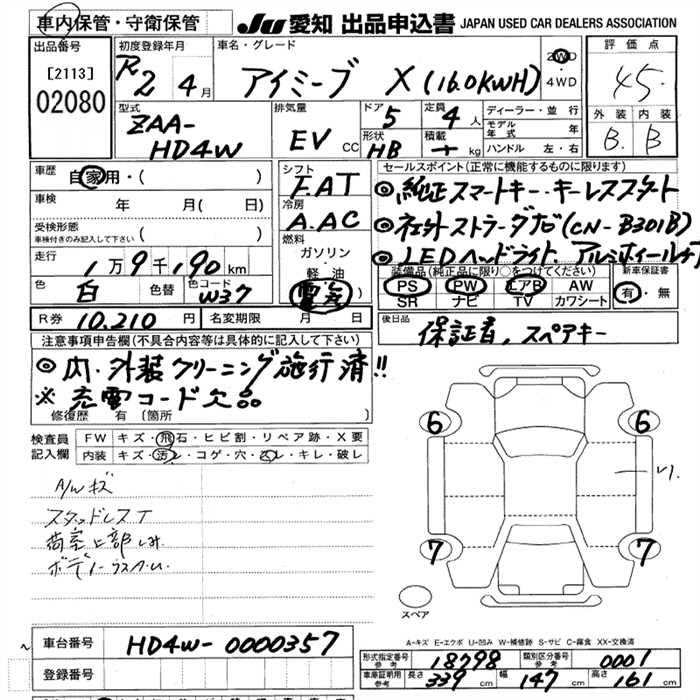 車内保管・守衛保管
JU 愛知 出品申込書 JAPAN USED CAR DEALERS ASSOCIATION
出品番号
[2113]
02080
初度登録年月
R2 4月
車名・グレード
アイミーブ X (16.0KWH)
2WD
4WD
評価点
45
外装 内装
B. B
型式
ZAA-
HD4W
排気量
EV CC
ドア
5
定員
4人
形状
HB
積載
kg
ディーラー・並行
モデル年式 年
ハンドル 左・右
車歴
自家用・( )
車検
年 月( 日)
受検形態
車検付きのみ記入して下さい ( )
走行
1万9千190km
色
白
色替
色コード
W37
R券 10.210円
名変期限 月 日
シフト
F.AT
冷房
A.AC
燃料
ガソリン
軽油
電気
セールスポイント(正常に機能するものに限ります)
◎純正スマートキー・キーレススタート
◎社外ストラーダナビ(CN-B301B)
◎LEDヘッドライト、アルミホイール
装備品(純正品に限り○をつけてください)
PS PW エアB AW
SR ナビ TV カワシート
新車保証書
有・無
後日品
保証書,スペアキー
注意事項申告欄(不具合内容等は具体的に記入して下さい)
◎内・外装クリーニング施行済!!
※充電コード欠品
修復歴 有 [箇所 ]
検査員記入欄
FW キズ・飛石・ヒビ割・リペア跡・X要
内装 キズ・汚レ・コゲ・穴・スレ・キレ・破レ
A/Wキズ
スタッドレスT
荷室上部しみ
6 6
7 7
スペア
A-キズ E-エクボ U-凹み W-補修跡 S-サビ C-腐食 XX-交換済
車台番号
HD4W-0000357
登録番号
形式指定番号 参考 18798
類別区分番号 参考 0001
車庫証明用 参考 長さ 339cm 幅 147cm 高さ 161cm